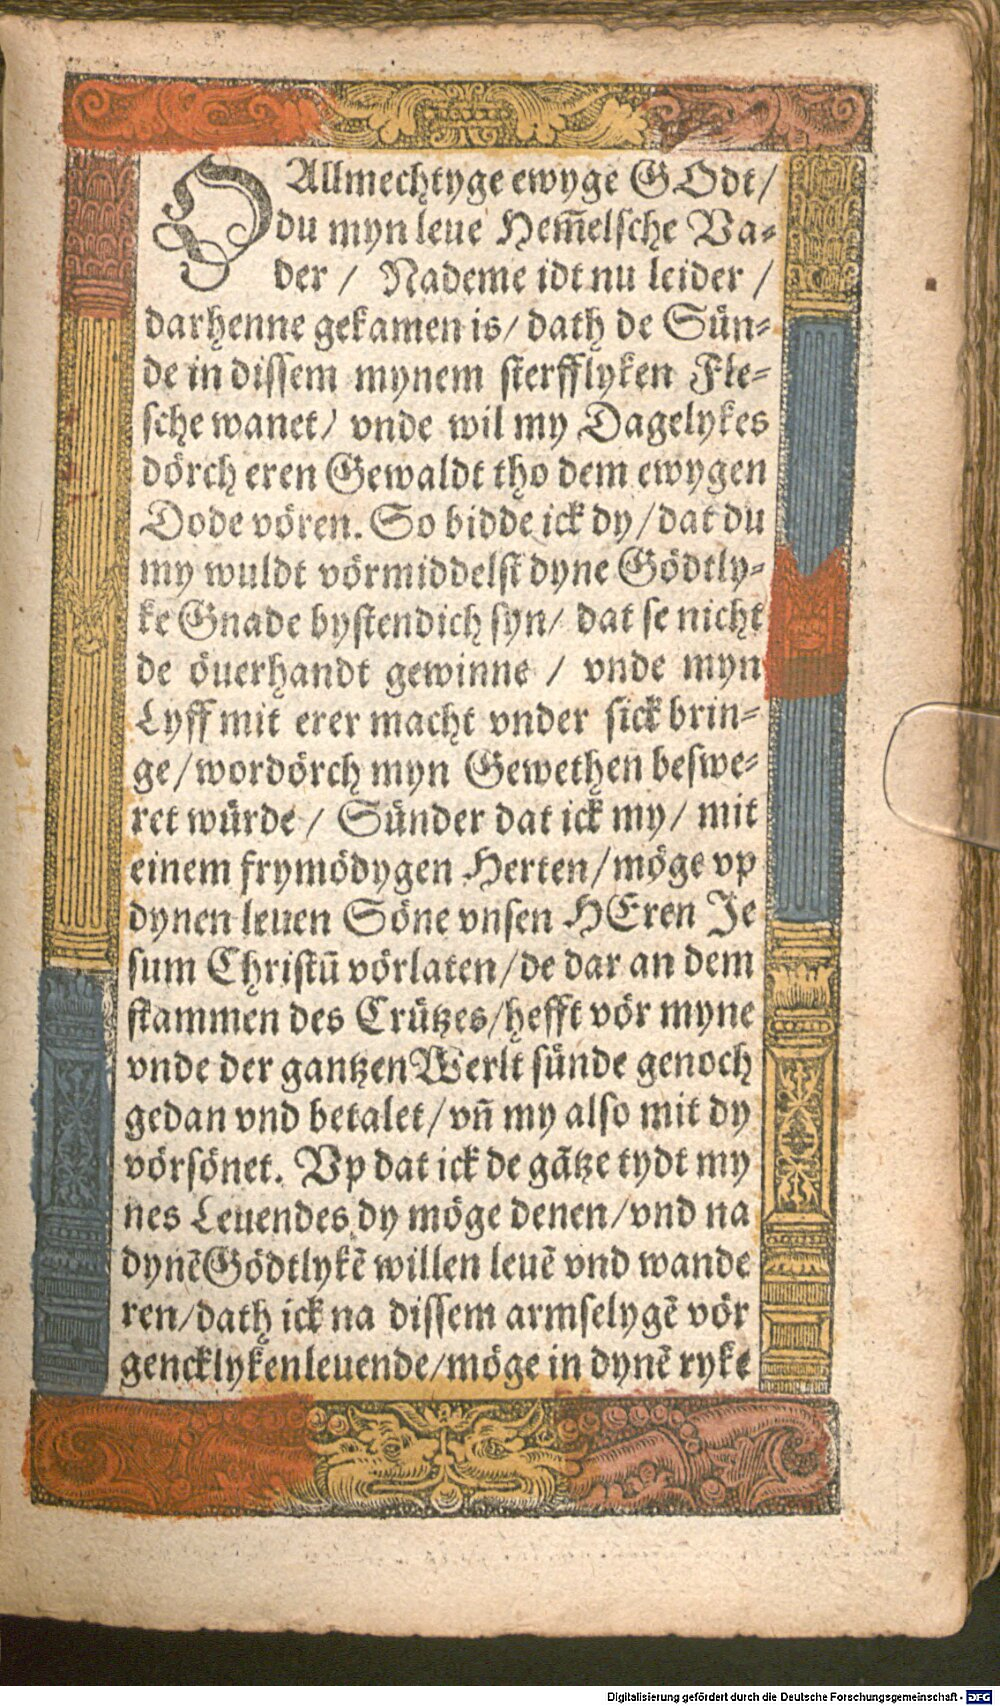 O Allmechtyge ewyge GOdt/
du myn leue Hem̃elsche Va⸗
der / Nademe idt nu leider /
darhenne gekamen is/ dath de Sün⸗
de in dissem mynem sterfflyken Fle⸗
sche wanet/ vnde wil my Dagelykes
dörch eren Gewaldt tho dem ewygen
Dode vören. So bidde ick dy/ dat du
my wuldt vörmiddelst dyne Gödtly⸗
ke Gnade bystendich syn/ dat se nicht
de öuerhandt gewinne / vnde myn
Lyff mit erer macht vnder sick brin⸗
ge/ wordörch myn Gewethen beswe⸗
ret würde / Sünder dat ick my/ mit
einem frymödygen Herten/ möge vp
dynen leuen Söne vnsen HEren Je
sum Christū vörlaten/ de dar an dem
stammen des Crützes/ hefft vör myne
vnde der gantzen Werlt sünde genoch
gedan vnd betalet/ vn̄ my also mit dy
vörsönet. Vp dat ick de gātze tydt my
nes Leuendes dy möge denen/ vnd na
dynē Gödtlykē willen leuē vnd wande
ren/ dath ick na dissem armselygē vör
gencklyken leuende/ möge in dynē ryke
Digitalisierung gefördert durch die Deutsche Forschungsgemeinschaft - DFG